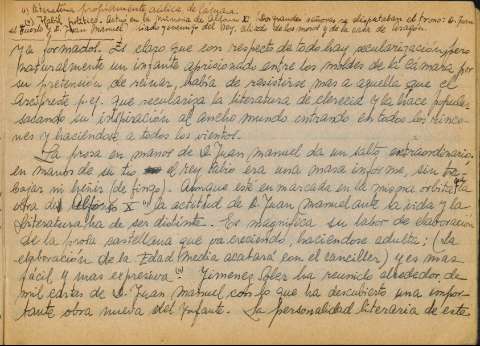 (1) Literatura propiamente aúlica de cámara.
(2) Hábil político. Actuó en la minoría de Alfonso XI. Dos grandes señores se disputaban el trono: D. Juan
el Tuerto y D. Juan Manuel, tíado y enemigo del Rey, aliado de los moros y de la casa de Aragón.
y la formador. El clazo que con respecto de todo hay secularización, pero
naturalmente un infante aprisionado entre los moldes de la cámara por
su pretensión de reinar, había de resistirse mas a aquella que el
arcipreste p. ej. que seculariza la literatura de clerecía y la hace popular
sacando su inspiración al ancho mundo entrando en todos los rinco-
nes y haciéndose a todos los vientos.
La prosa en manos de D. Juan Manuel da un salto extraordinario;
en manos de su tío el rey sabio era una masa informe, sin tra-
bajar ni heñir (de fingo). Aunque esté enmarcada en la misma órbita q. la
obra de Alfonso X la actitud de D. Juan Manuel ante la vida y la
literatura ha de ser distinta. Es magnífica su labor de elaboración
de la prosa castellana que va creciendo, haciéndose adulta; (la
elaboración de la Edad Media acabará con el canciller) y es mas
fácil y mas expresiva. (2) Gimenez Soler ha reunido alrededor de
mil cartas de D. Juan Manuel con lo que ha descubierto una impor-
tante obra nueva del Infante. La personalidad literaria de este